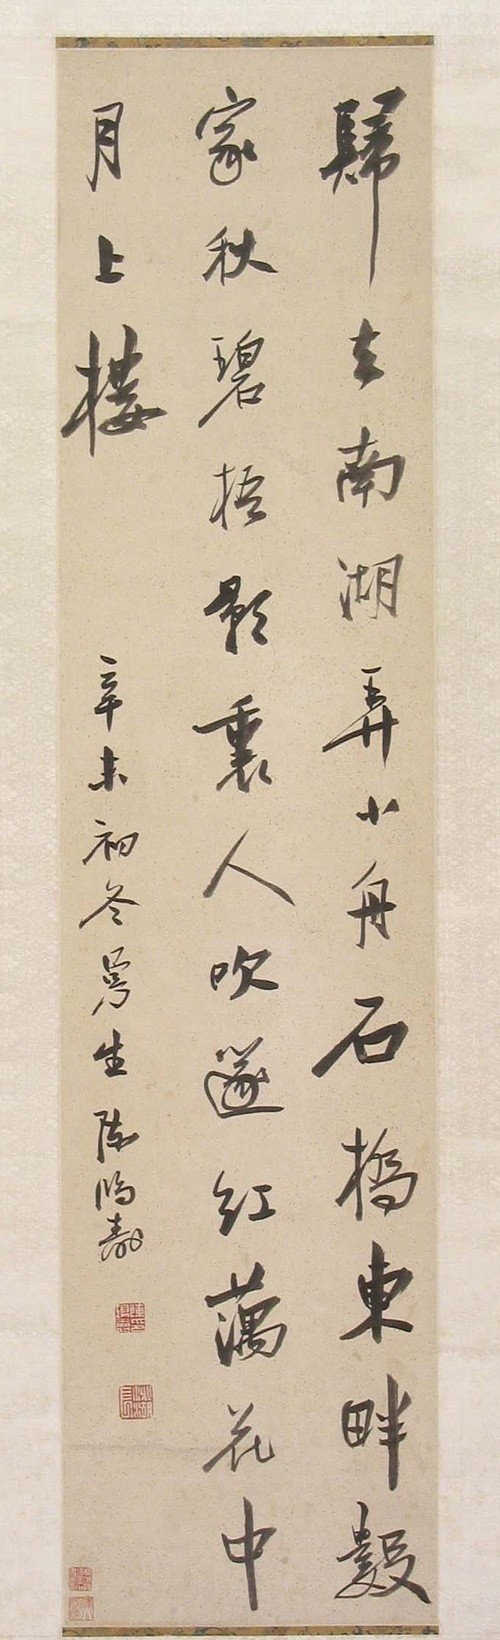 歸去南湖弄小舟石橋東畔數
家秋碧梧影裏人吹篴紅藕花中
月上樓
辛未初冬曼生陳鴻壽